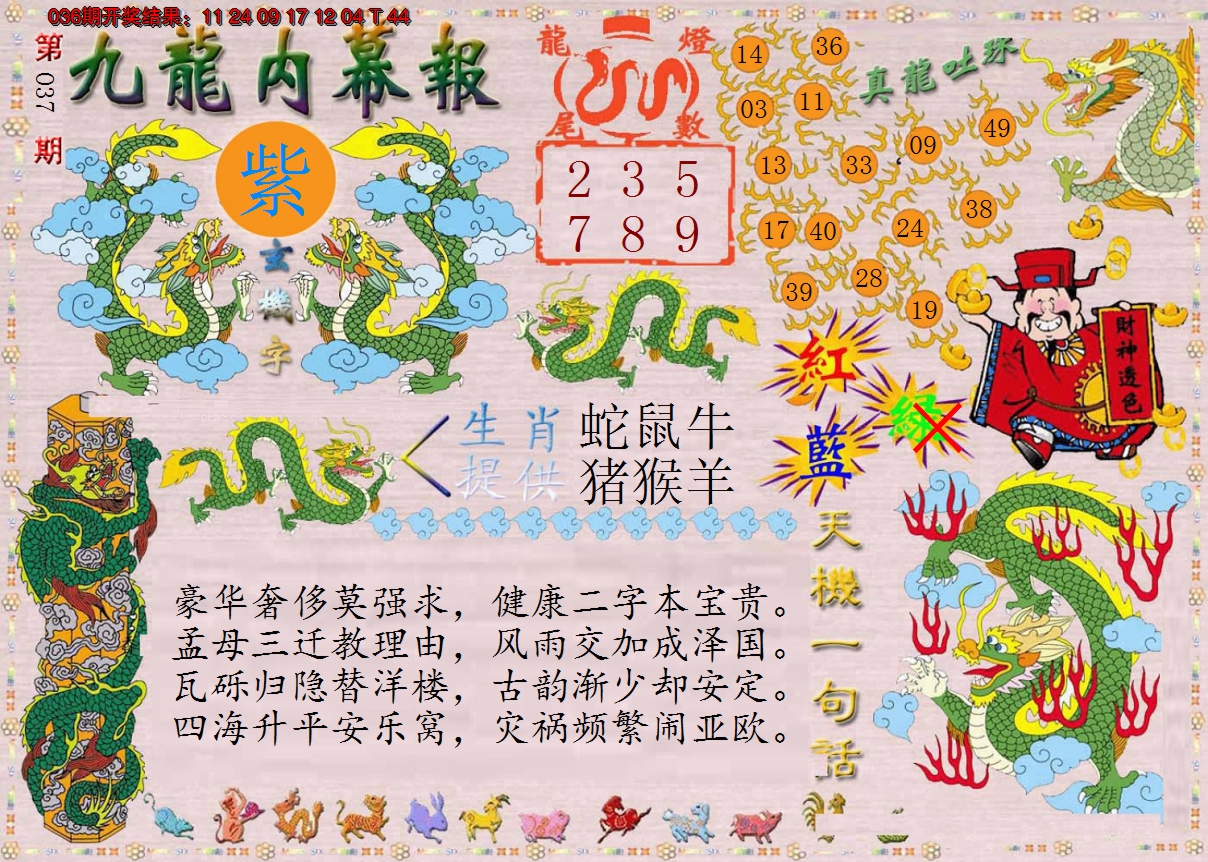 036期开奖结果：11 24 09 17 12 04 T 44
第037期
九龍内幕報
紫
玄機字
龍燈
尾數
2 3 5
7 8 9
真龍吐珠
14 36
03 11
13 33 09 49
17 40 24 38
39 28 19
財神透色
紅
綠
藍
生肖 蛇鼠牛
提供 猪猴羊
天機一句话
豪华奢侈莫强求，健康二字本宝贵。
孟母三迁教理由，风雨交加成泽国。
瓦砾归隐替洋楼，古韵渐少却安定。
四海升平安乐窝，灾祸频繁闹亚欧。